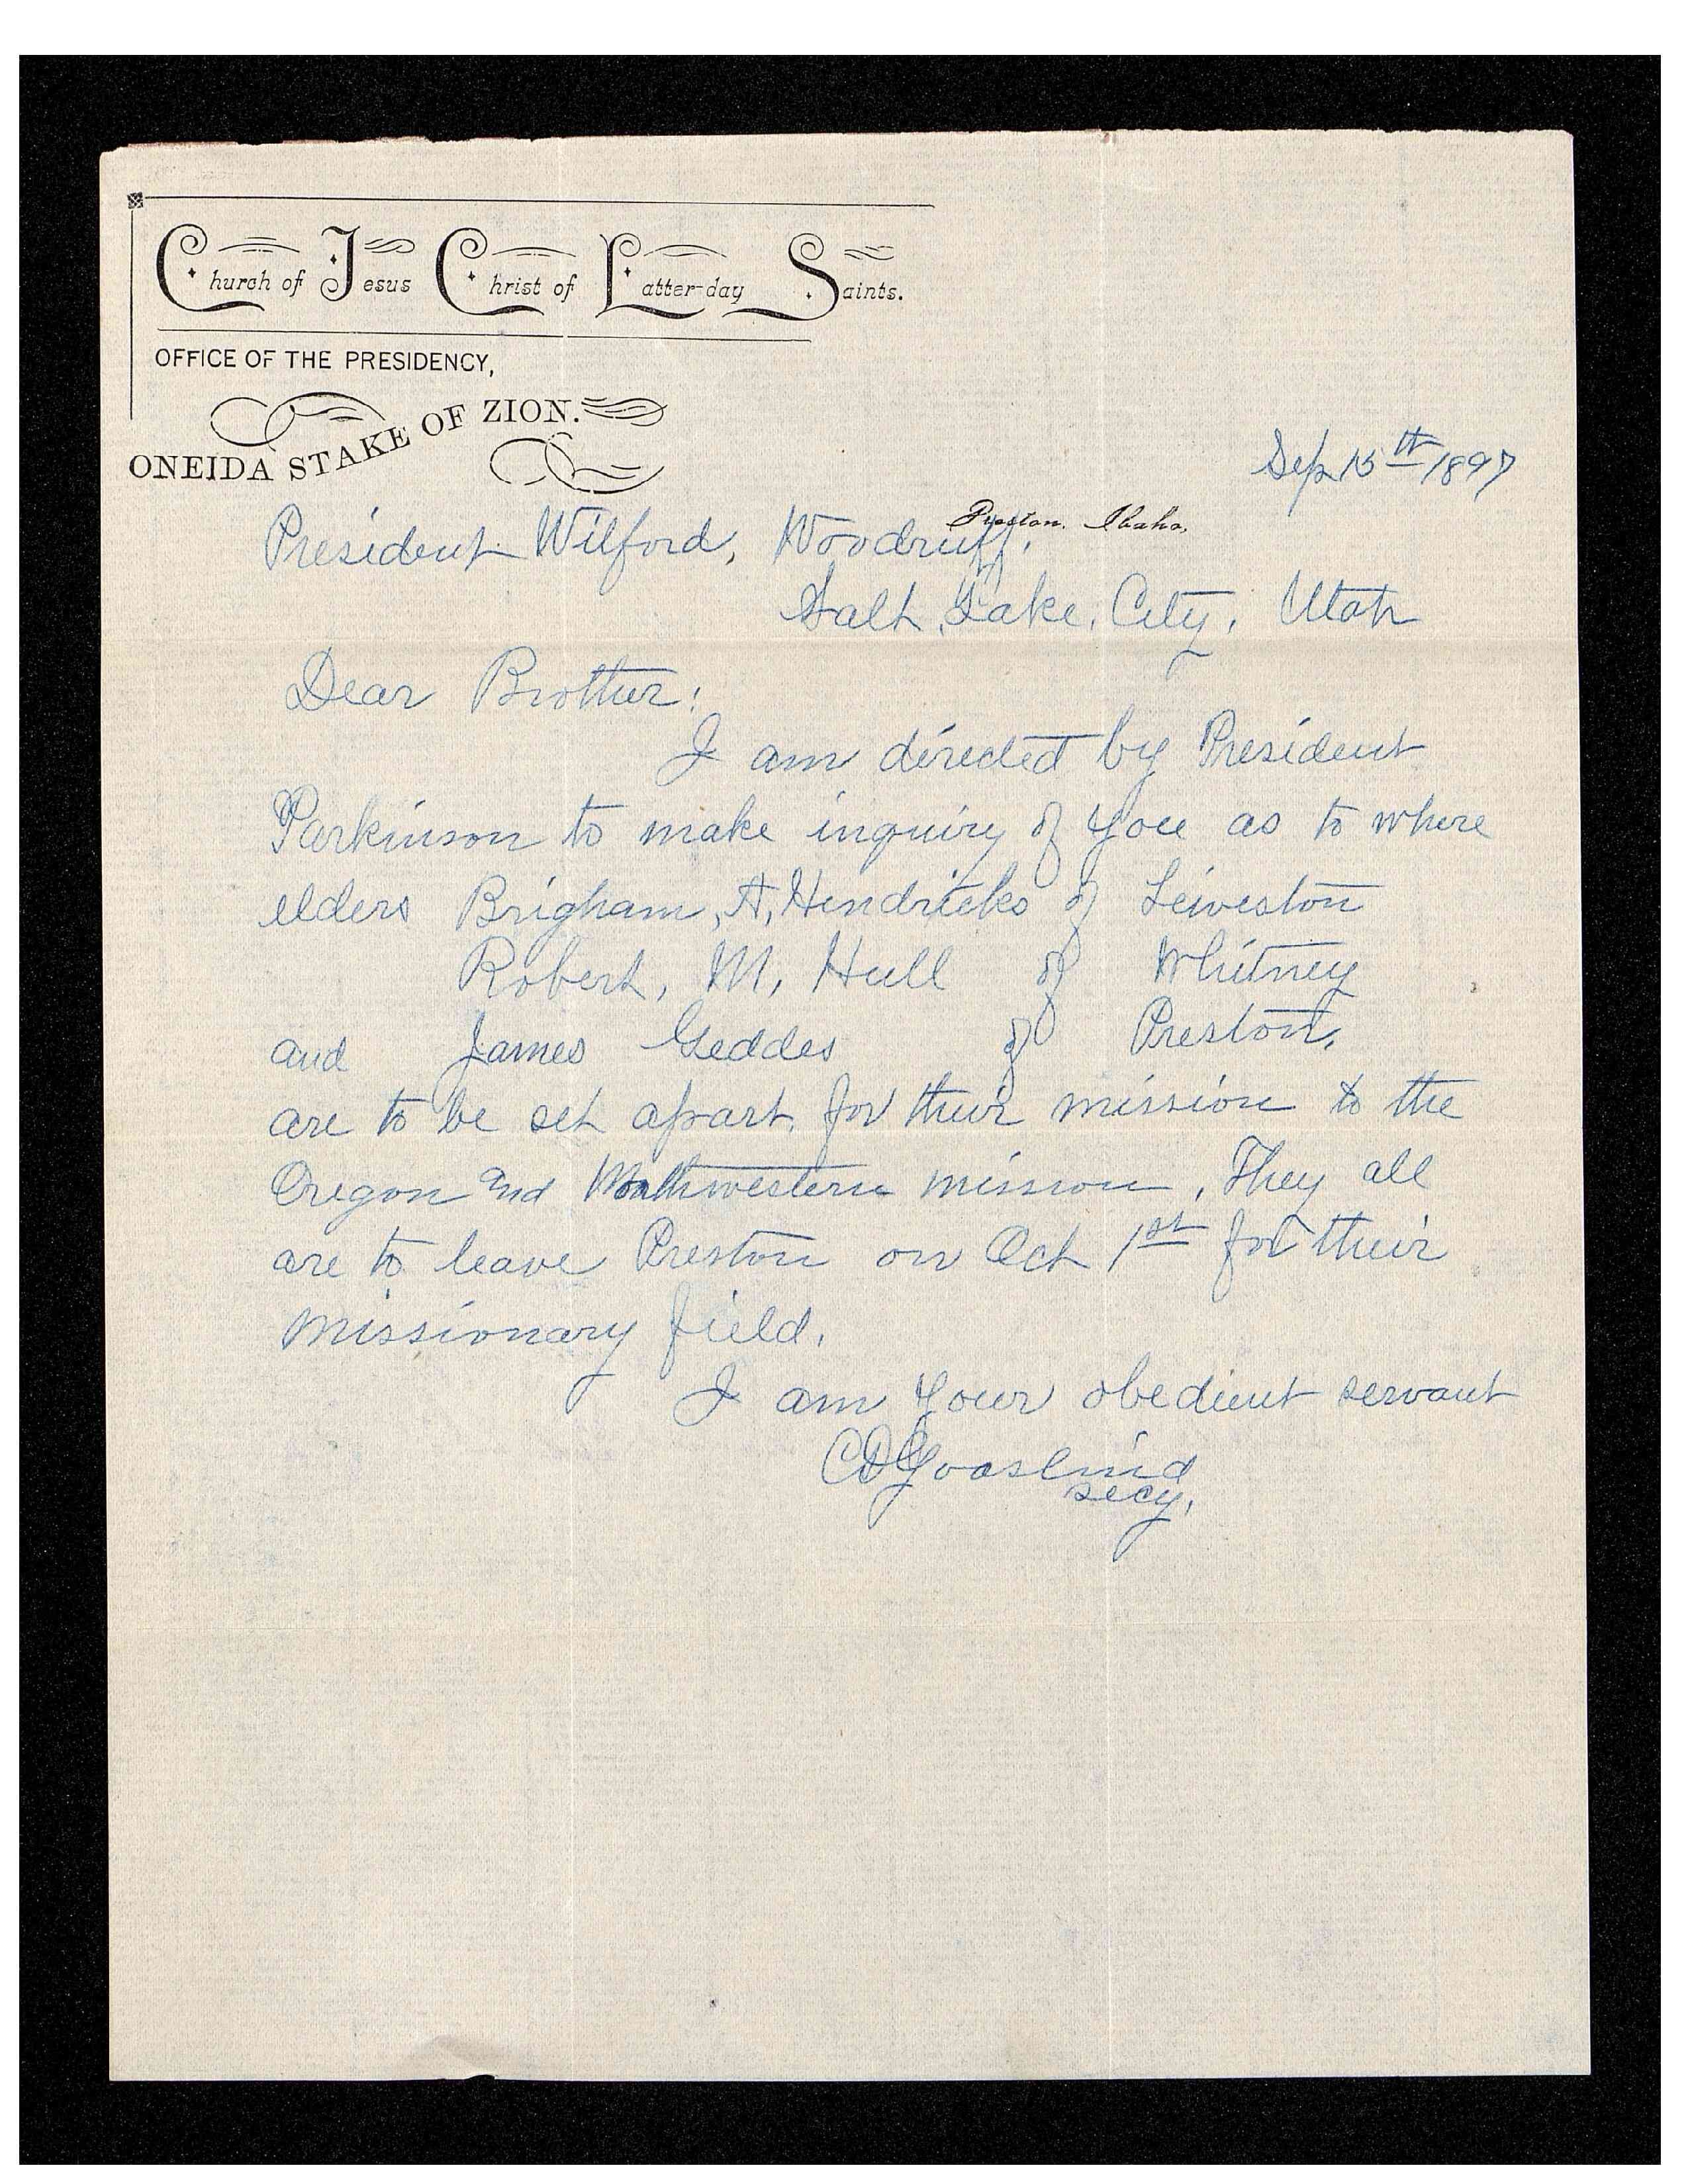 Church of Jesus Christ of Latter-day Saints.
OFFICE OF THE PRESIDENCY,
ONEIDA STAKE OF ZION.
Sep 15th 1897
Preston, Idaho,
President Wilford, Woodruff,
Salt, Lake, City, Utah
Dear Brother:
I am directed by President
Parkinson to make inquiry of you as to where
elders Brigham, A, Hendricks of Leiveston
Robert, M, Hull of Whitney
and James Geddes of Preston,
are to be set apart for their mission to the
Oregon and Northwestern mission, They all
are to leave Preston on Oct 1st for their
missionary field,
I am your obedient servant
CDGoaslind
secy,